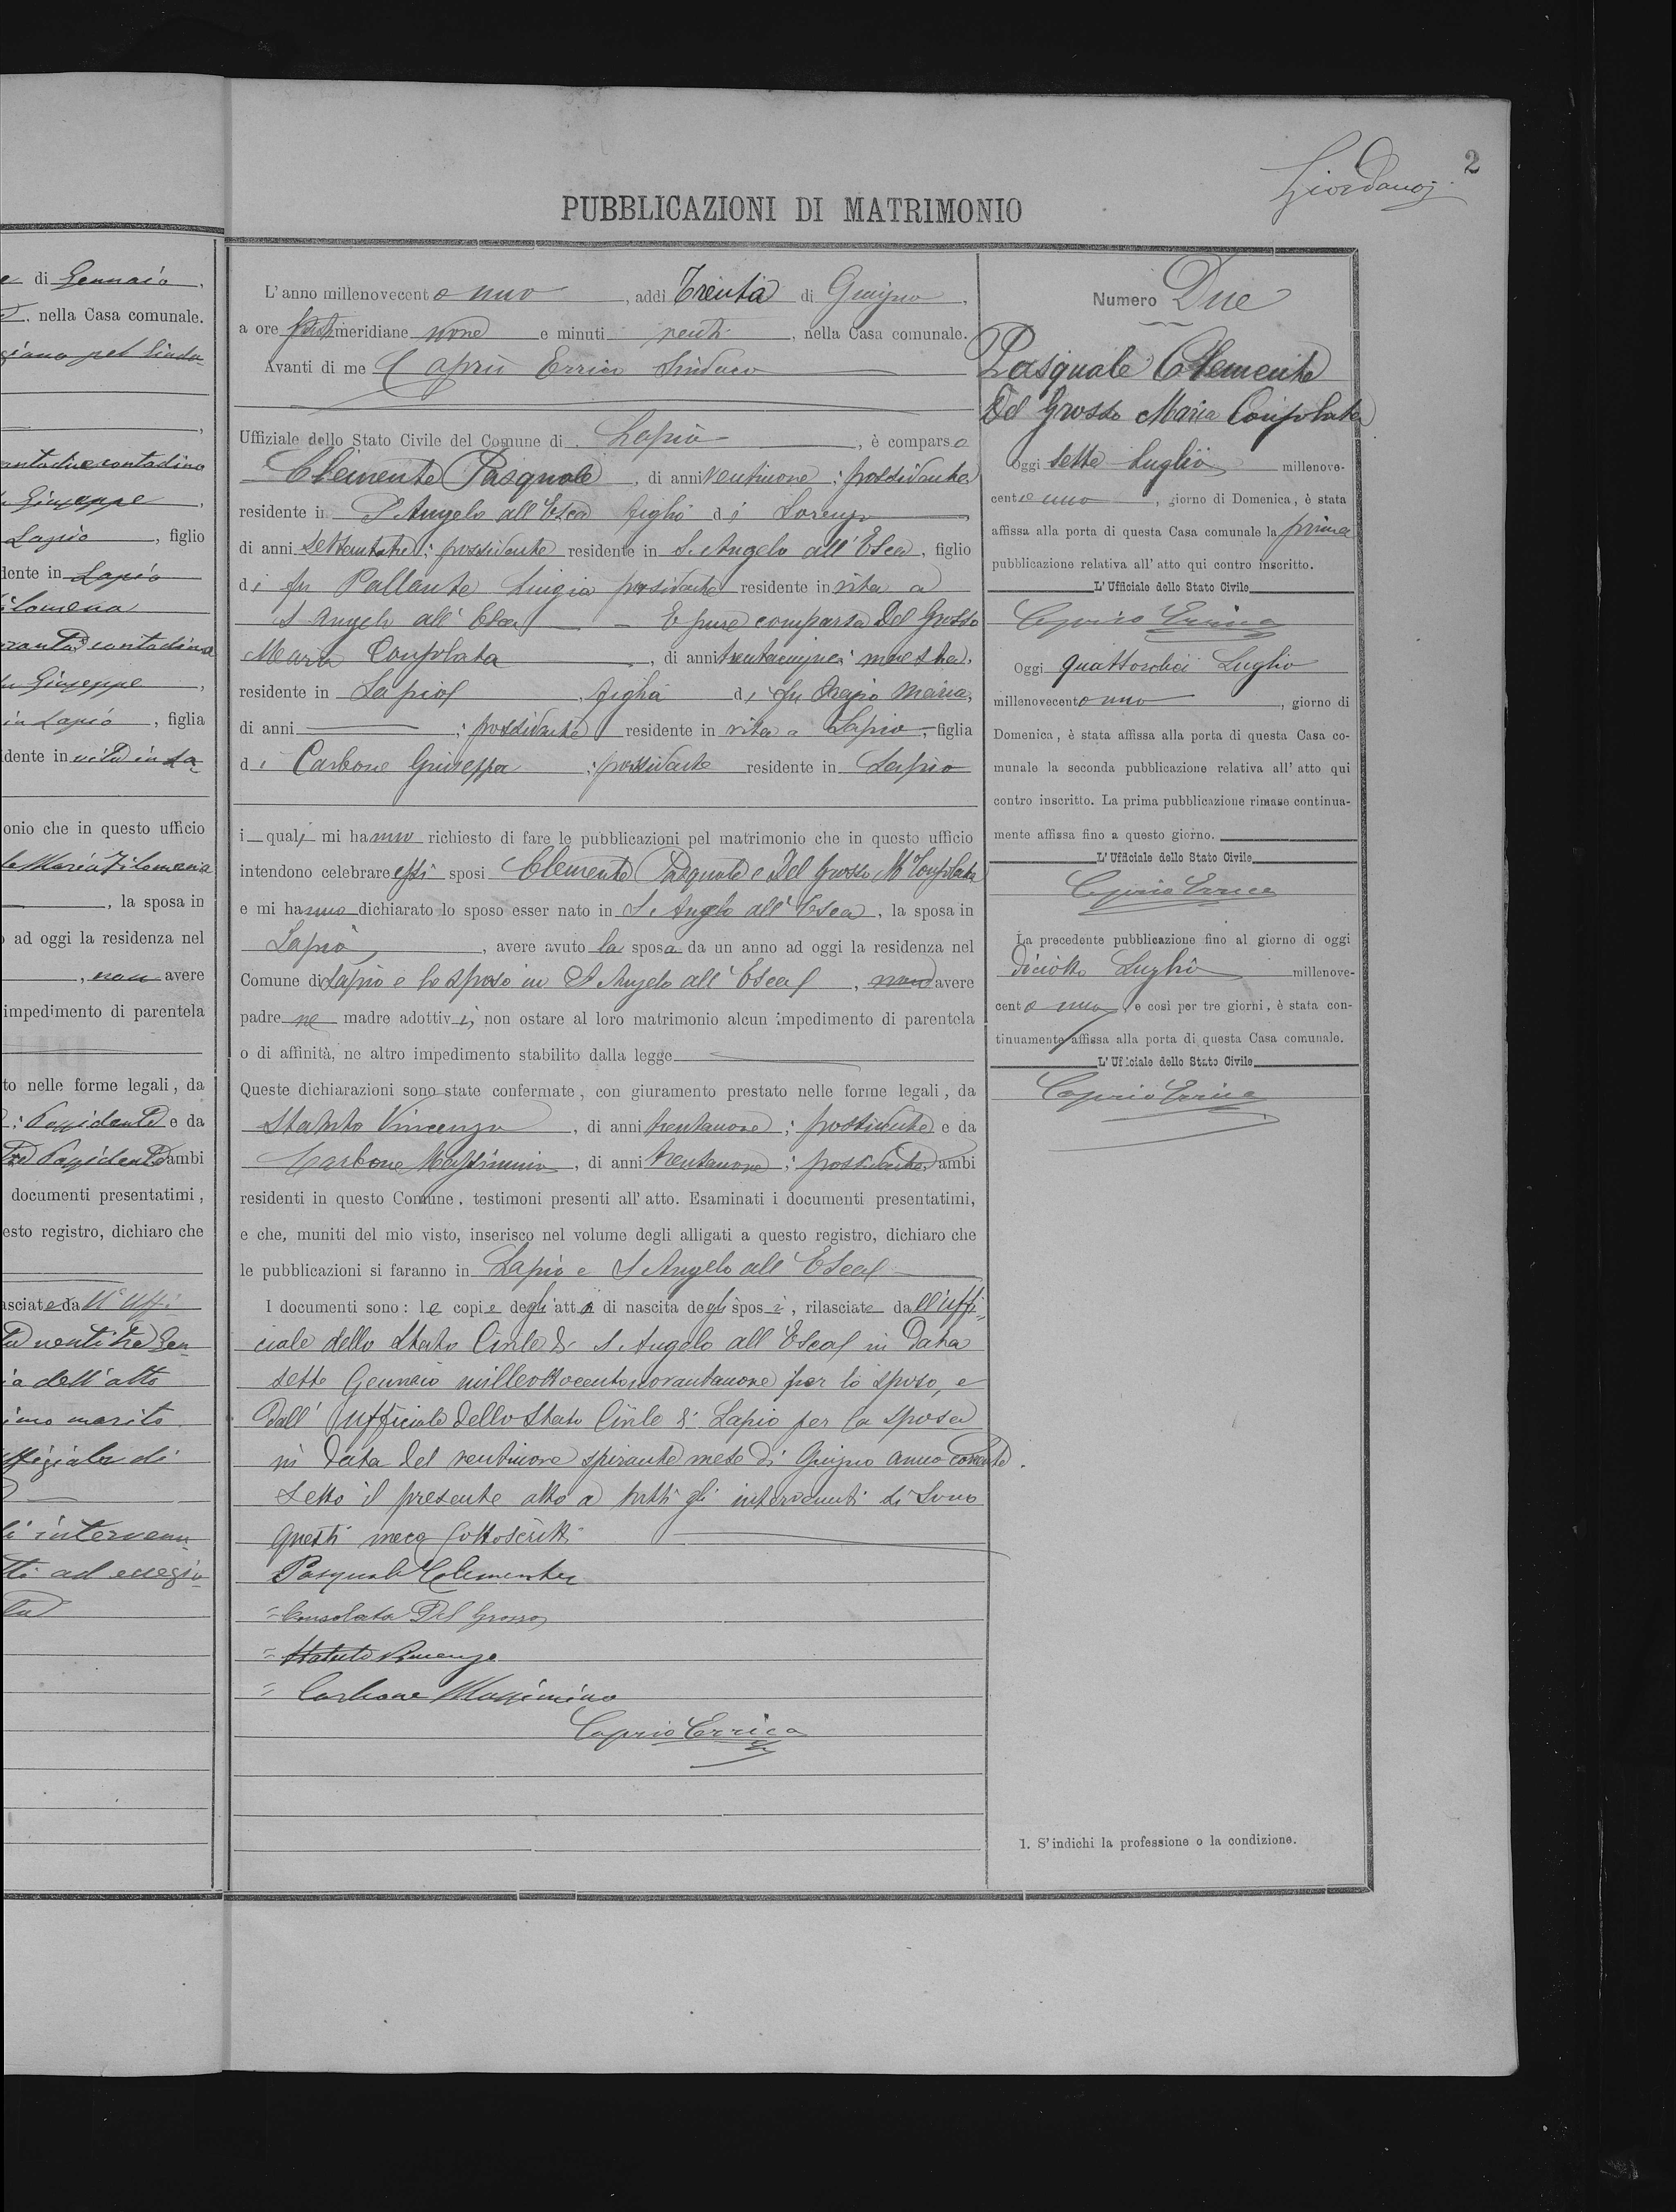 2
Giordano
PUBBLICAZIONI DI MATRIMONIO
e di Gennaio,
, nella Casa comunale.
giano pel Sinda-
contadino
Giuseppe,
Lapio, figlio
dente in Lapio
ilomena
ranta contadina
fu Giuseppe,
in Lapio, figlia
idente in vita in La-
onio che in questo ufficio
Maria Filomena
, la sposa in
ad oggi la residenza nel
, non avere
impedimento di parentela
to nelle forme legali, da
: Possidente e da
Possidente ambi
documenti presentatimi,
esto registro, dichiaro che
asciate dall'Uffi
ventitre Gen
ia dell'atto
imo marito
ffiziale di
li interven
ad
L'anno millenovecento uno, addì Trenta di Giugno,
a ore Postmeridiane nove e minuti venti, nella Casa comunale.
Avanti di me Caprio Errico Sindaco
Uffiziale dello Stato Civile del Comune di Lapio, è comparso
Clemente Pasquale, di anni ventinove; possidente
residente in S. Angelo all'Esca figlio di Lorenzo,
di anni settantatre; possidente residente in S. Angelo all'Esca, figlio
di fu Pallante Luigia possidente residente in vita a
S. Angelo all'Esca - E pure comparsa Del Grosso
Maria Consolata, di anni trentacinque; maestra,
residente in Lapio, figlia di fu Orazio Maria,
di anni ; possidente residente in vita a Lapio, figlia
di Carbone Giuseppa ; possidente residente in Lapio
i quali mi hanno richiesto di fare le pubblicazioni pel matrimonio che in questo ufficio
intendono celebrare essi sposi Clemente Pasquale e Del Grosso Mª Consolata
e mi hanno dichiarato lo sposo esser nato in S. Angelo all'Esca, la sposa in
Lapio, avere avuto la sposa da un anno ad oggi la residenza nel
Comune di Lapio e lo sposo in S. Angelo all'Esca, non avere
padre ne madre adottivi, non ostare al loro matrimonio alcun impedimento di parentela
o di affinità, ne altro impedimento stabilito dalla legge
Queste dichiarazioni sono state confermate, con giuramento prestato nelle forme legali, da
Statuto Vincenzo, di anni trentanove; possidente e da
Carbone Massimino, di anni trentanove; possidente, ambi
residenti in questo Comune, testimoni presenti all'atto. Esaminati i documenti presentatimi,
e che, muniti del mio visto, inserisco nel volume degli alligati a questo registro, dichiaro che
le pubblicazioni si faranno in Lapio e S. Angelo all'Esca
I documenti sono: le copie degli atti di nascita degli sposi, rilasciate dall'uffi-
ciale dello Stato Civile di S. Angelo all'Esca in data
sette Gennaio milleottocentonovantanove per lo sposo, e
dall'Ufficiale dello Stato Civile di Lapio per la sposa
in data del ventinove spirante mese di Giugno anno corrente.
Letto il presente atto a tutti gli intervenuti si sono
questi meco sottoscritti
Pasquale Clemente
= Consolata Del Grosso
= Statuto Vincenzo
= Carbone Massimino
Caprio Errico
Numero Due
Pasquale Clemente
Del Grosso Maria Consolata
Oggi sette Luglio millenove-
cento uno, giorno di Domenica, è stata
affissa alla porta di questa Casa comunale la prima
pubblicazione relativa all'atto qui contro inscritto.
L'Ufficiale dello Stato Civile
Caprio Errico
Oggi quattordici Luglio
millenovecento uno, giorno di
Domenica, è stata affissa alla porta di questa Casa co-
munale la seconda pubblicazione relativa all'atto qui
contro inscritto. La prima pubblicazione rimase continua-
mente affissa fino a questo giorno.
L'Ufficiale dello Stato Civile
Caprio Errico
La precedente pubblicazione fino al giorno di oggi
diciotto Luglio millenove-
cento uno, e così per tre giorni, è stata con-
tinuamente affissa alla porta di questa Casa comunale.
L'Ufficiale dello Stato Civile
Caprio Errico
1. S'indichi la professione o la condizione.